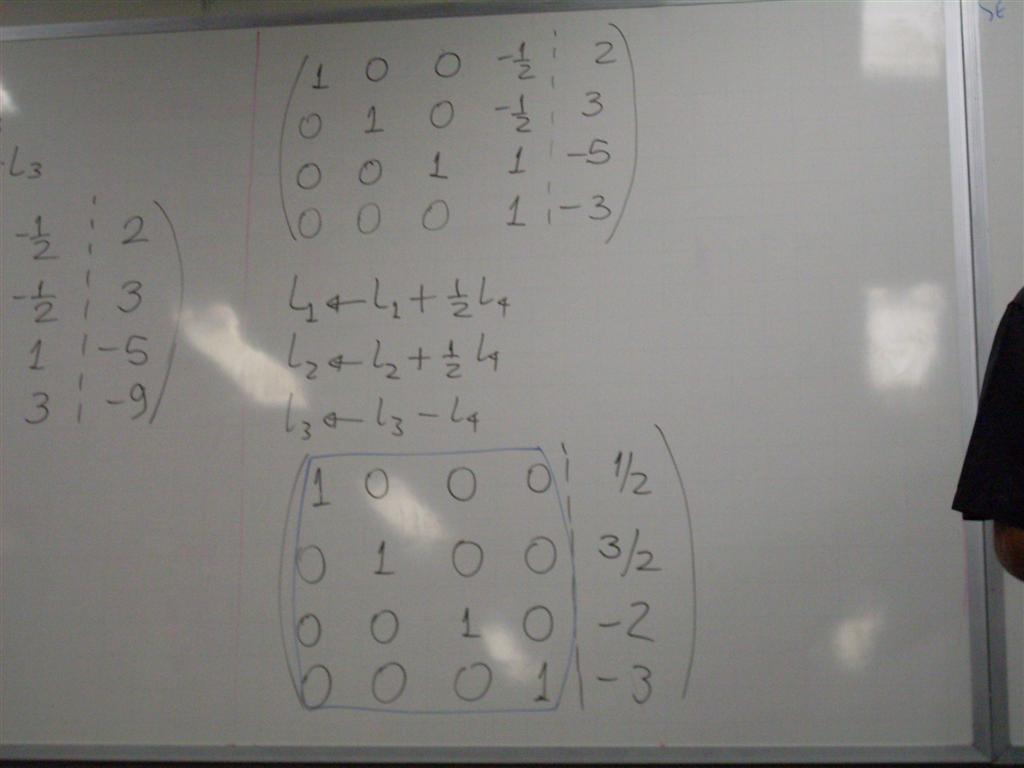 -L3
-1/2 ¦ 2
-1/2 ¦ 3
1 ¦ -5
3 ¦ -9
1 0 0 -1/2 ¦ 2
0 1 0 -1/2 ¦ 3
0 0 1 1 ¦ -5
0 0 0 1 ¦ -3
L1 ← L1 + 1/2 L4
L2 ← L2 + 1/2 L4
L3 ← L3 - L4
1 0 0 0 ¦ 1/2
0 1 0 0 | 3/2
0 0 1 0 | -2
0 0 0 1 | -3